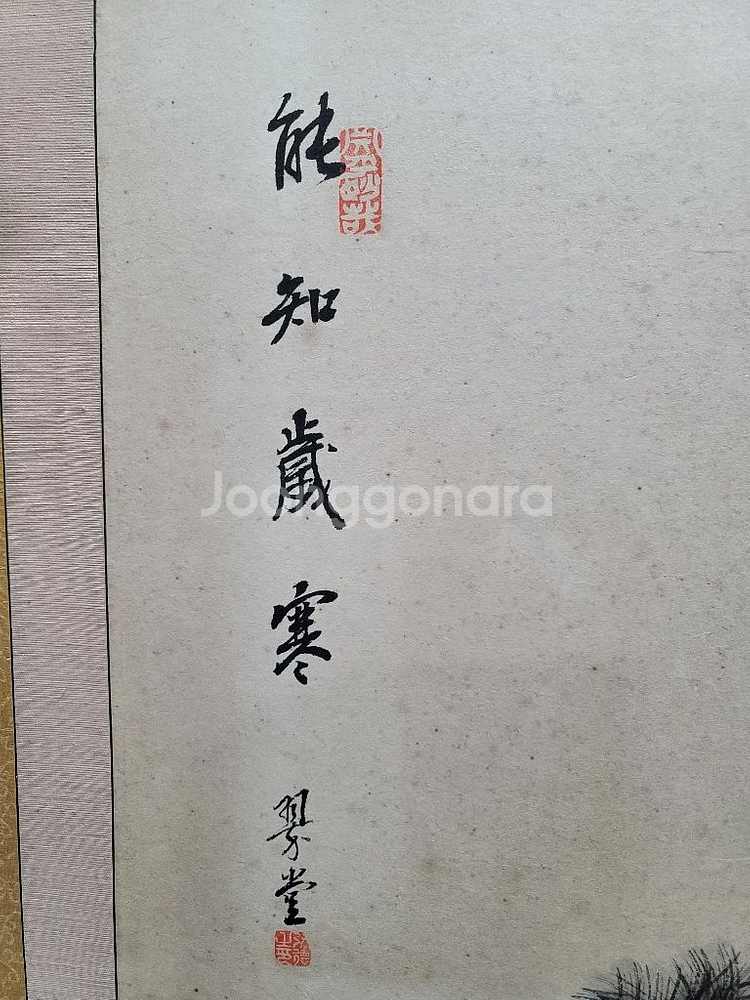 能知歲寒
翠堂
Joonggonara